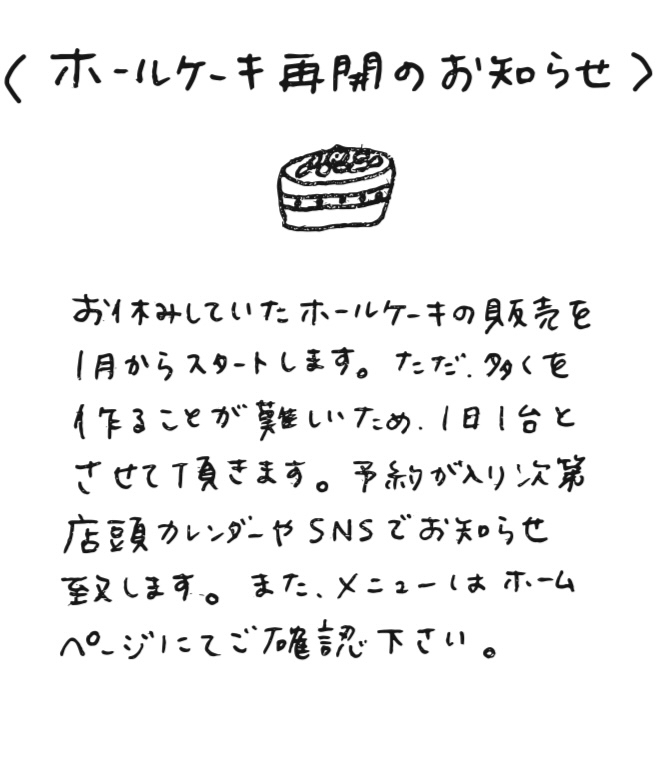 〈ホールケーキ再開のお知らせ〉
お休みしていたホールケーキの販売を
1月からスタートします。ただ、多くを
作ることが難しいため、1日1台と
させて頂きます。予約が入り次第
店頭カレンダーやSNSでお知らせ
致します。また、メニューはホーム
ページにてご確認下さい。